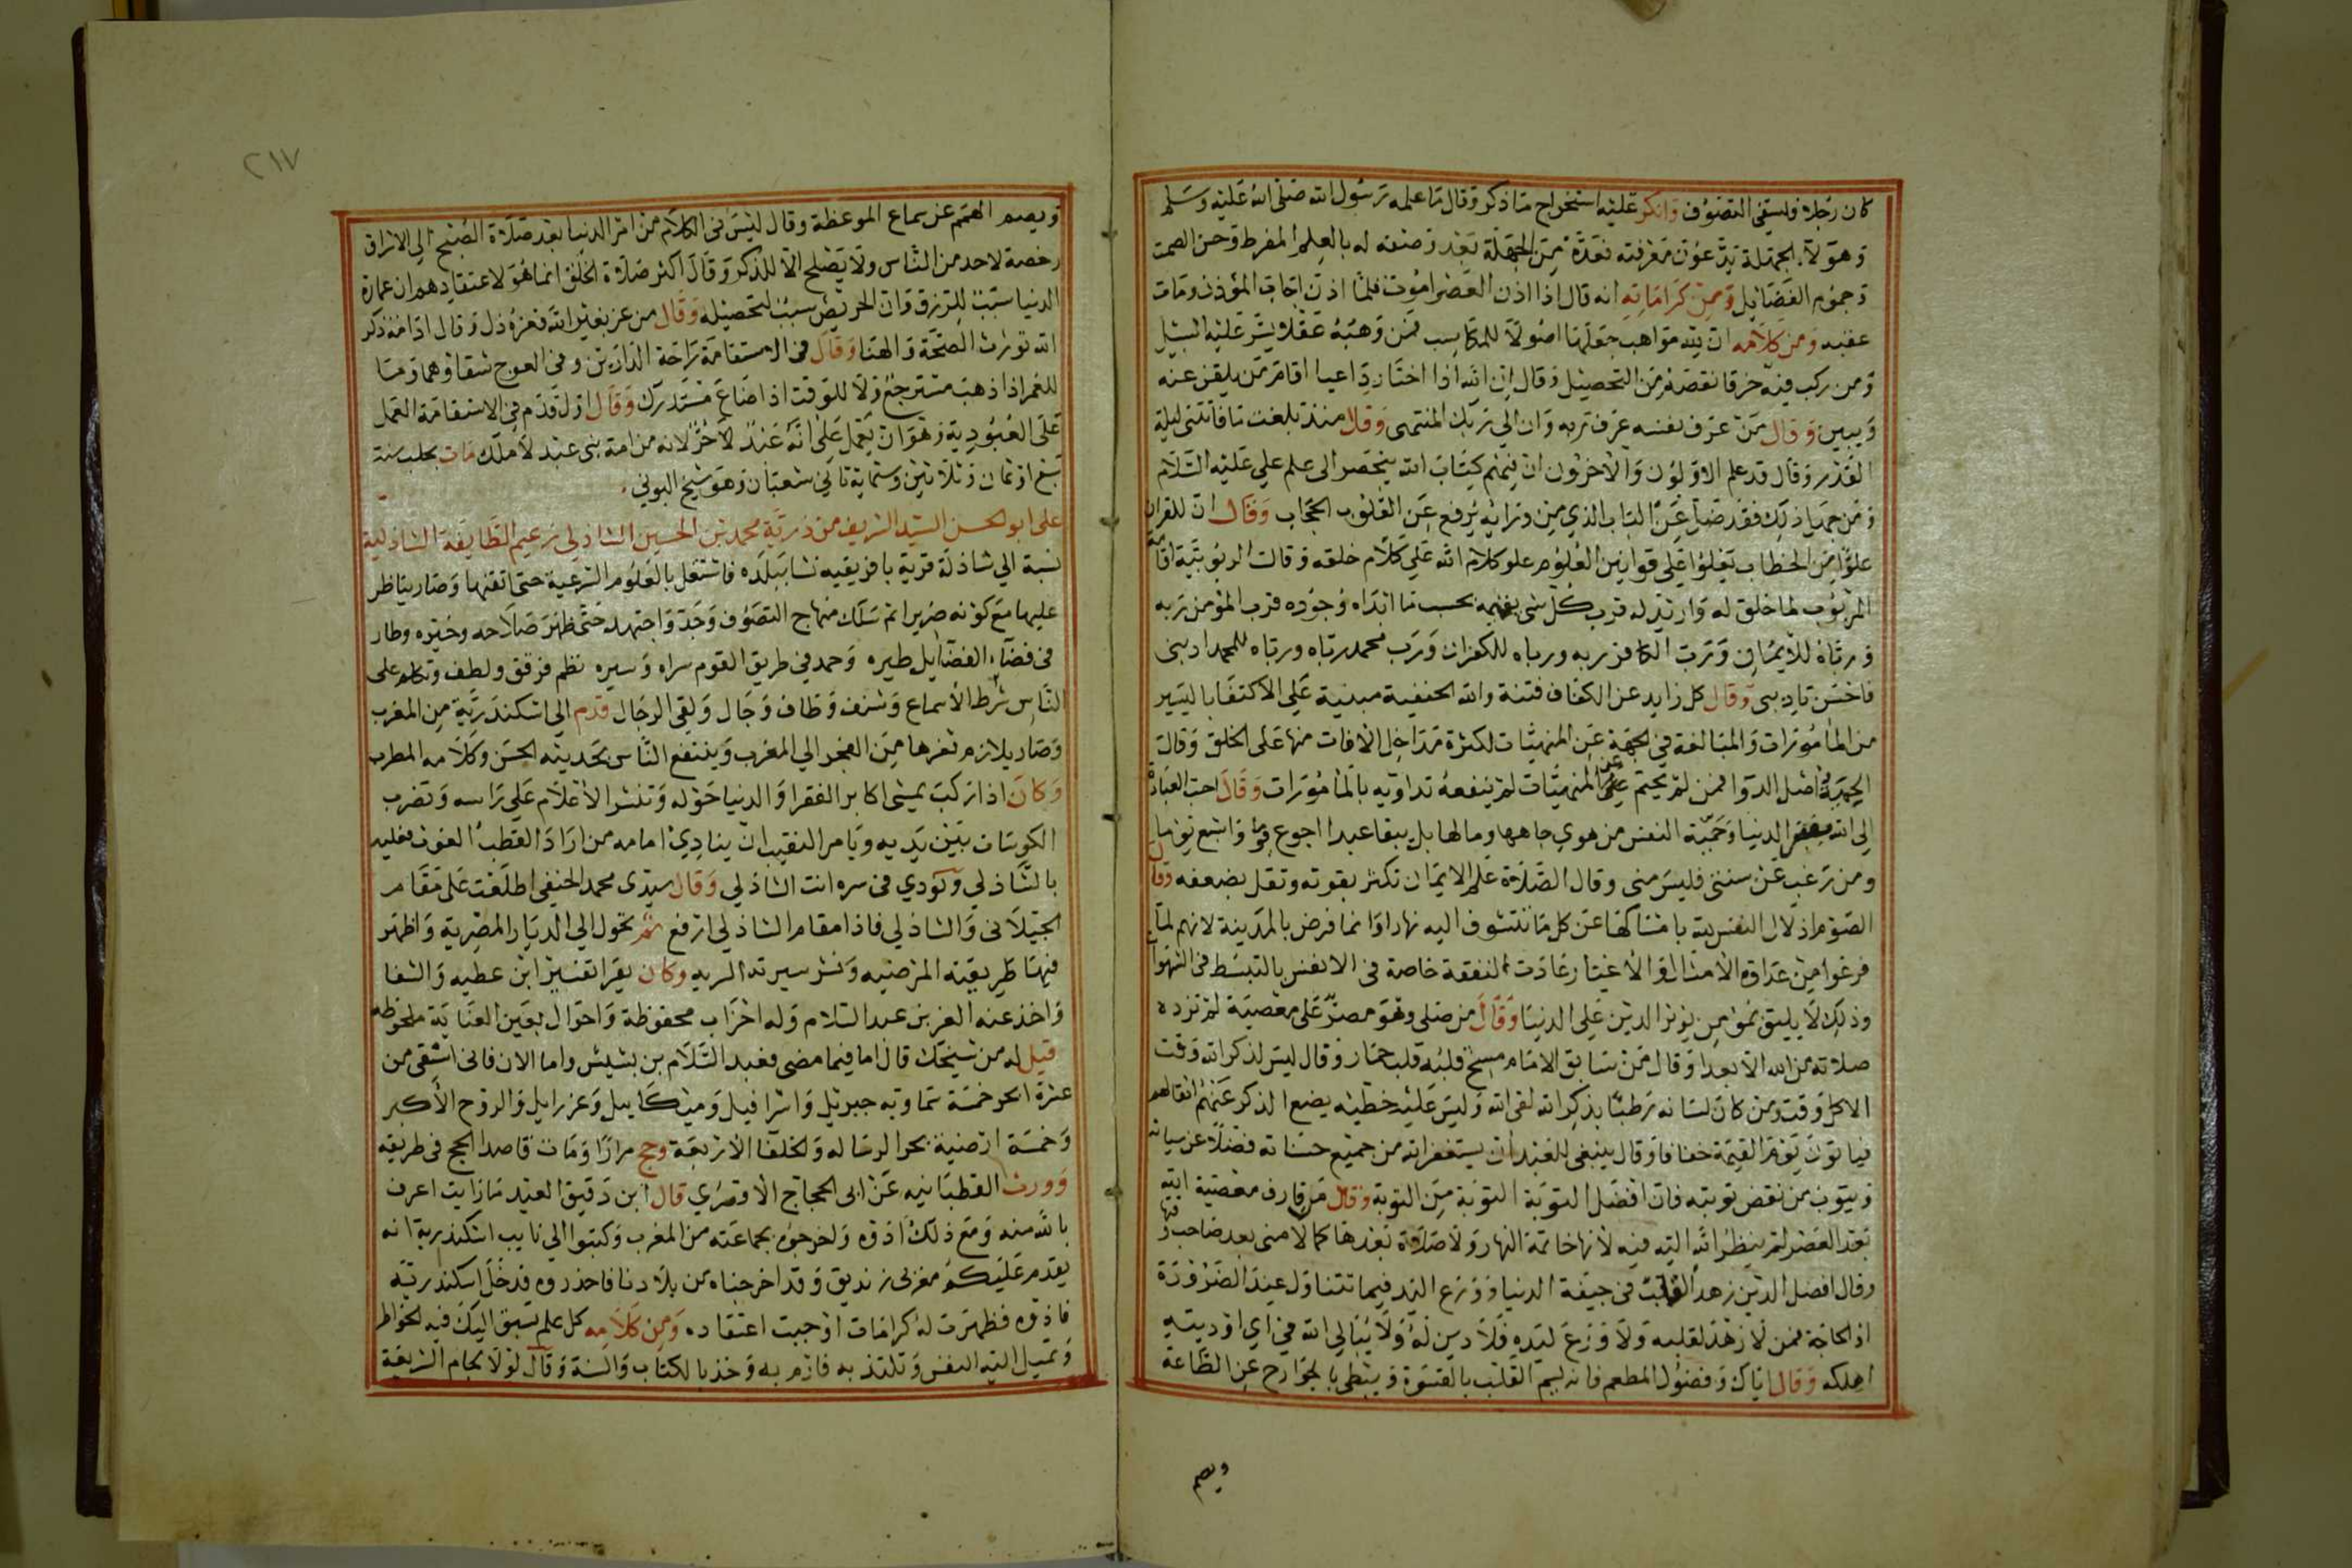 كان رجلا وليسفى التصوف وانكر عليه استخراج ما ذكر وقال ما علمه رسول الله صلى الله عليه وسلم
وهولا الجهلة يدعون معرفته نعدة من الجهلة بعد وصفه له بالعلم المفرط وحسن الصمت
وجموم الفضايل ومن كراماته انه قال اذا اذن العصر اموت فلما اذن اجاب المؤذن ومات
عقبه ومن كلامه ان لله مواهب جعلها اصولا للمكاسب فمن وهبه عقلا يسر عليه السبيل
ومن ركب فيه خرقا نقصه من التحصيل وقال ان الله اذا اختار داعيا اقام من يلقن عنه
ويبين وقال من عرف نفسه عرف ربه وان الى ربك المنتهى وقال منذ بلغت ما فاتتنى ليلة
القدر وقال قد علم الاولون والاخرون ان فهم كتاب الله ينحصر الى علم علي عليه السلام
ومن جهل ذلك فقد ضل عن الباب الذي من ورائه يرفع عن القلوب الحجاب وقال ان للقران
علوا من الخطاب يعلوا على قوانين العلوم علو كلام الله على كلام خلقه وقالت الربوبية اقامة
المربوب لما خلق له واريد له فرب كل شى يقيمه بحسب ما ابداه وجوده فرب المؤمن ربه
ورباه للايمان ورب الكافر ربه ورباه للكفران ورب محمد رباه ورباه للحمد ادبنى
فاحسن تاديبى وقال كل زايد عن الكفاف فتنة والله الحنفية مبنية على الاكتفا باليسير
من المامورات والمبالغة فى الحمية عن المنهيات لكثرة مداخل الافات منها على الخلق وقالت
الحمية اصل الدوا فمن لم يحتم عن المنهيات لم ينفعه تداويه بالمامورات وقال احب العباد
الى الله فقير الدنيا وحمية النفس من هوى جاهها ومالها بل يبقا عبدا اجوع يوما واشبع يوما
ومن رغب عن سنتى فليس منى وقال الصلاة علم الايمان تكثر بقوته وتقل بضعفه وقال
الصوم اذلال النفس لله بامساكها عن كل ما تتشوف اليه نهارا وانما فرض بالمدينة لانهم لما
فرغوا من عداوة الامثال والاغيار عادت النفقة خاصة فى الانفس بالتبسط فى الشهوات
وذلك لا يليق بمومن يوثر الدين على الدنيا وقال من صلى وهو مصر على معصية لم تزده
صلاته من الله الا بعدا وقال من سابق الامام مسخ قلبه قلب حمار وقال ليس لذكر الله وقت
الا كل وقت ومن كان لسانه رطبا بذكر الله لقى الله وليس عليه خطيئه يضع الذكر عنهم اثقالهم
فياتون يوم القيمة خفافا وقال ينبغى للعبد ان يستغفر الله من جميع حسناته فضلا عن سياته
ويتوب من نقض توبته فان افضل التوبة التوبة من التوبة وقال من قارف معصية الله
بعد العصر لم ينظر الله اليه فيه لانها خاتمة النهار ولا صلاة بعدها كما لا منى بعد صاحب وقتها
وقال افضل الدين زهد القلب فى جيفة الدنيا وورع اليد فيما تتناول عند الضرورة
اذ الحاجة فمن لا زهد لقلبه ولا ورع ليده فلا دين له ولا يبالى الله فى اى اوديته
اهلكه وقال اياك وفضول المطعم فانه يسم القلب بالقسوة ويبطى بالجوارح عن الطاعة
ويصم
٢١٧
ويصم الهمم عن سماع الموعظة وقال ليس فى الكلام من امر الدنيا بعد صلاة الصبح الى الاشراق
رخصة لاحد من الناس ولا يصلح الا للذكر وقال اكثر صلاة الخلق انما هو لاعتقادهم ان عمارة
الدنيا سبب للرزق وان الحريص سبب لتحصيله وقال من عز بغير الله فعزه ذل وقال ادامة ذكر
الله تورث الصحة والهنا وقال فى الاستقامة راحة الدارين وفى العوج شقاوهما وما
للعمر اذا ذهب مسترجع ولا للوقت اذا ضاع مستدرك وقال اول قدم فى الاستقامة العمل
على العبودية وهو ان يعمل على انه عبد لا حر لانه من امة بنى عبد لا ملك مات بحلب سنة
سبع او ثمان وثلاثين وستماية ثانى شعبان وهو شيخ البونى
على ابو الحسن السيد الشريف من ذرية محمد بن الحسين الشاذلى زعيم الطايفة الشاذلية
نسبة الى شاذلة قرية بافريقيه نشا ببلده فاشتغل بالعلوم الشرعية حتى اتقنها وصار يناظر
عليها مع كونه ضريرا ثم سلك منهاج التصوف وجد واجتهد حتى ظهر صلاحه وخيره وطار
فى فضاء الفضايل طيره وحمد فى طريق القوم سراه وسيره نظم فرقق ولطف وتكلم على
الناس شرط الاسماع وشنف وطاف وجال ولقى الرجال قدم الى اسكندرية من المغرب
وصار يلازم ثغرها من الفجر الى المغرب وينتفع الناس بحديثه الحسن وكلامه المطرب
وكان اذا ركب يمشى اكابر الفقرا والدنيا حوله وتنشر الاعلام على راسه وتضرب
الكوسات بين يديه ويامر النقيب ان ينادى امامه من اراد القطب الغوث فعليه
بالشاذلى ونودى فى سره انت الشاذلى وقال سيدى محمد الحنفى اطلعت على مقام
الجيلانى والشاذلى فاذا مقام الشاذلى ارفع ثم تحول الى الديار المصرية واظهر
فيها طريقته المرضيه ونشر سيرته السريه وكان يقرا تفسير ابن عطيه والشفا
واخذ عنه العز بن عبد السلام وله احزاب محفوظة واحوال بعين العناية ملحوظه
قيل له من شيخك قال اما فيما مضى فعبد السلام بن بشيش واما الان فانى اسقى من
عشرة ابحر خمسة سماوية جبريل واسرافيل وميكاييل وعزرايل والروح الاكبر
وخمسة ارضية بحر الرساله والخلفا الاربعة وحج مرارا ومات قاصدا الحج فى طريقه
وورث القطبانيه عن ابى الحجاج الاقصرى قال ابن دقيق العيد ما رايت اعرف
بالله منه ومع ذلك اذوه واخرجوه بجماعته من المغرب وكتبوا الى نايب اسكندرية انه
يقدم عليكم مغربى زنديق وقد اخرجناه من بلادنا فاحذروه فدخل اسكندرية
فاذوه فظهرت له كرامات اوجبت اعتقاده ومن كلامه كل علم تسبق اليك فيه الخواطر
وتميل اليه النفس وتلتذ به فارم به وخذ بالكتاب والسنة وقال لولا لجام الشريعة